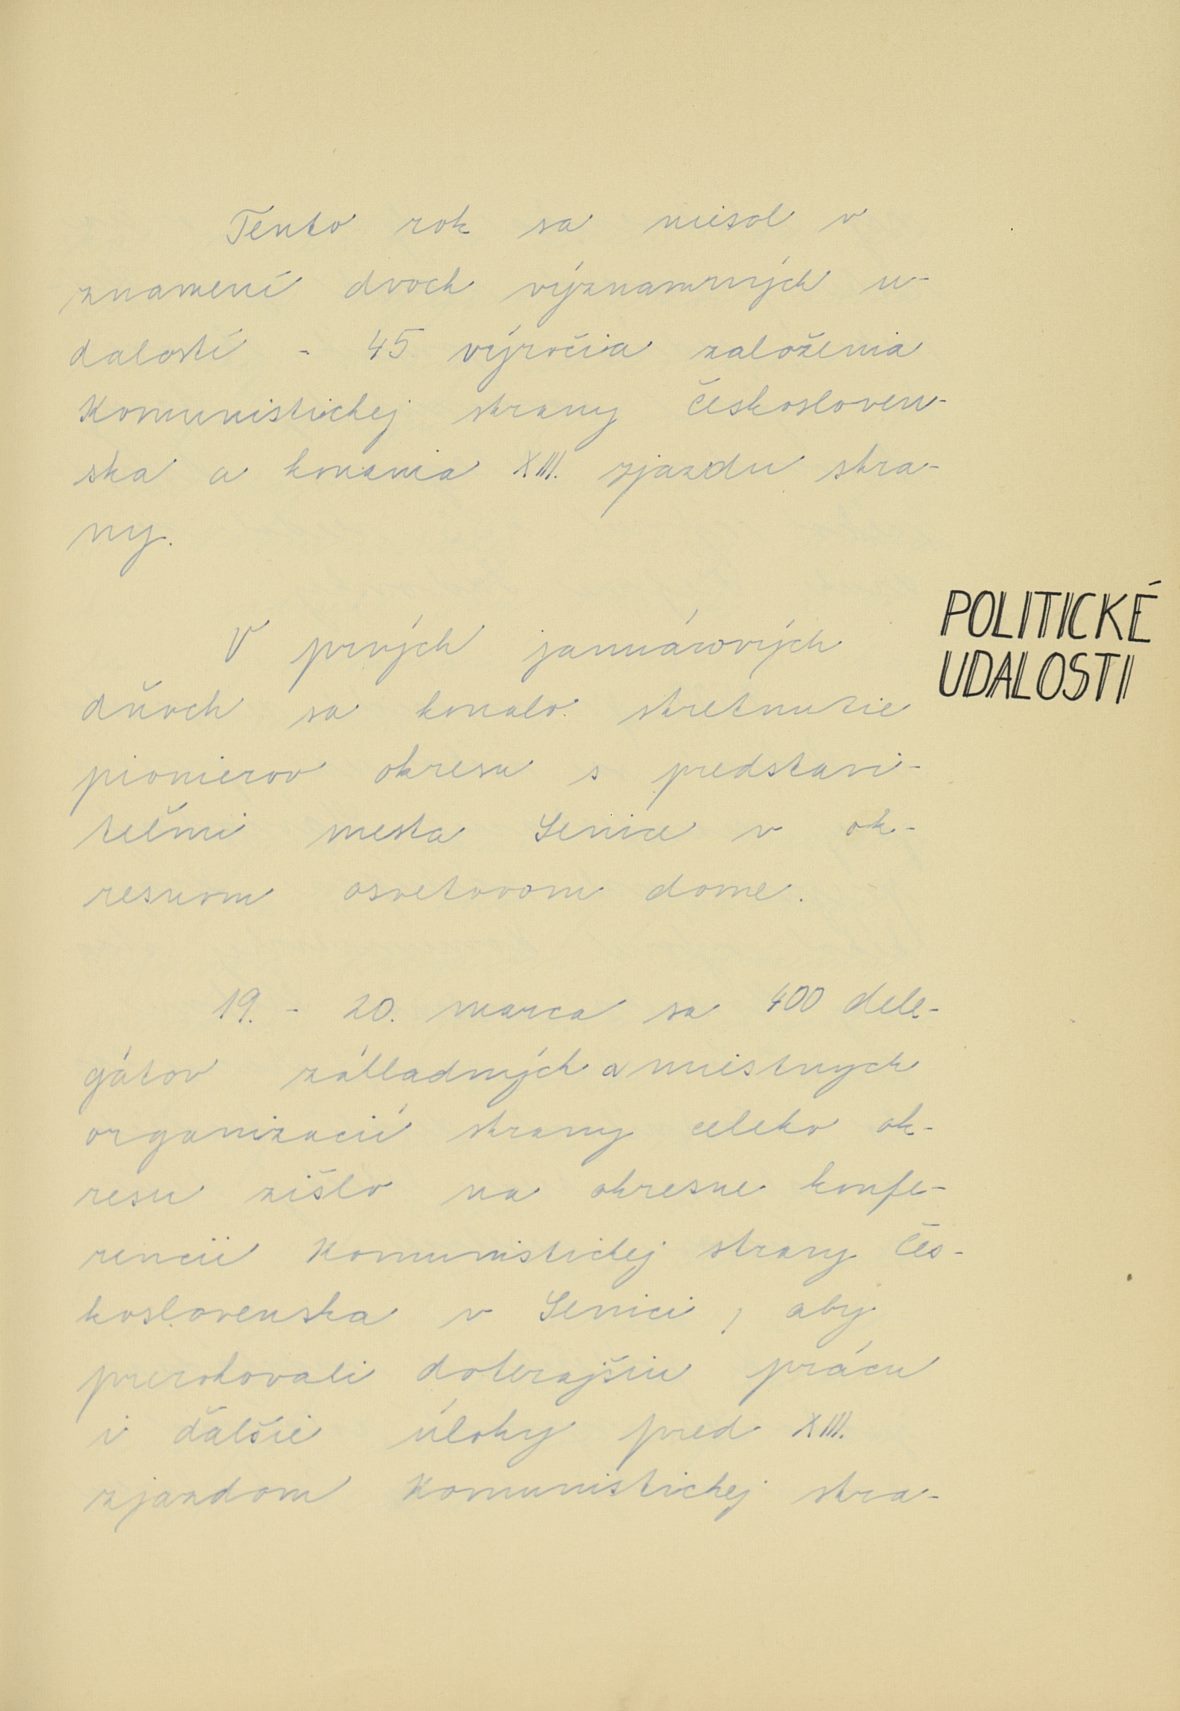 Tento rok sa niesol v
znamení dvoch významných u-
dalostí - 45 výročia založenia
Komunistickej strany Českosloven-
ska a konania XIII. zjazdu stra-
ny.
POLITICKÉ
UDALOSTI
V prvých januárových
dňoch sa konalo stretnutie
pionierov okresu s predstavi-
teľmi mesta Senice v ok-
resnom osvetovom dome.
19. - 20. marca sa 400 dele-
gátov základných a miestnych
organizacií strany celého ok-
resu zišlo na okresne konfe-
rencii Komunistickej strany Čes-
koslovenska v Senici, aby
prerokovali doterajšiu prácu
i ďalšie úlohy pred XIII.
zjazdom Komunistickej stra-